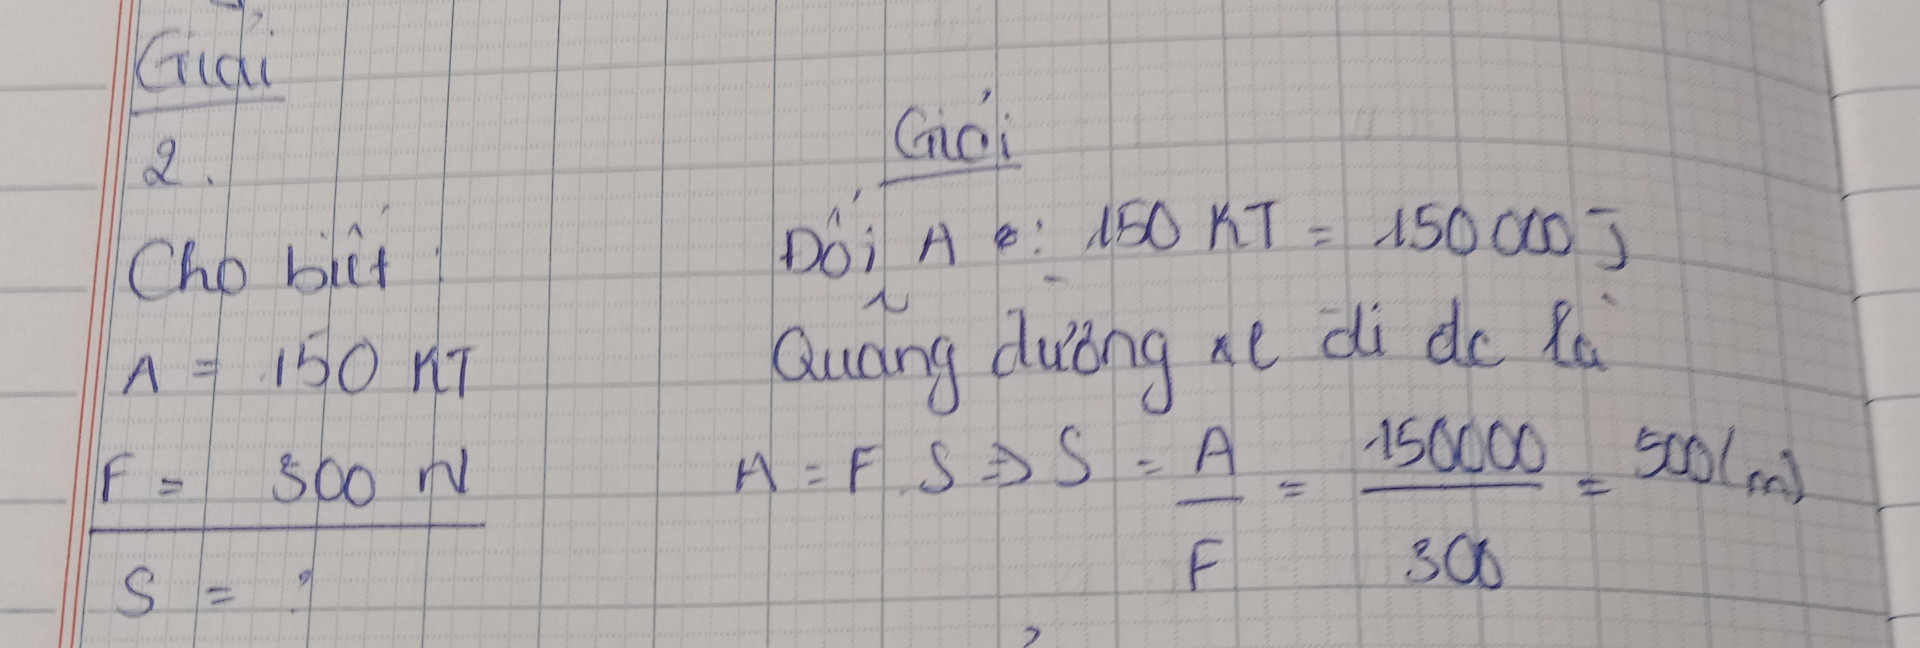 Giải
2.
Cho biết:
A = 150 KJ
F = 300 N
S = ?
Giải
Đổi A : 150 KJ = 150000 J
Quãng đường xe đi dc là
A = F.S => S = A/F = 150000/300 = 500(m)